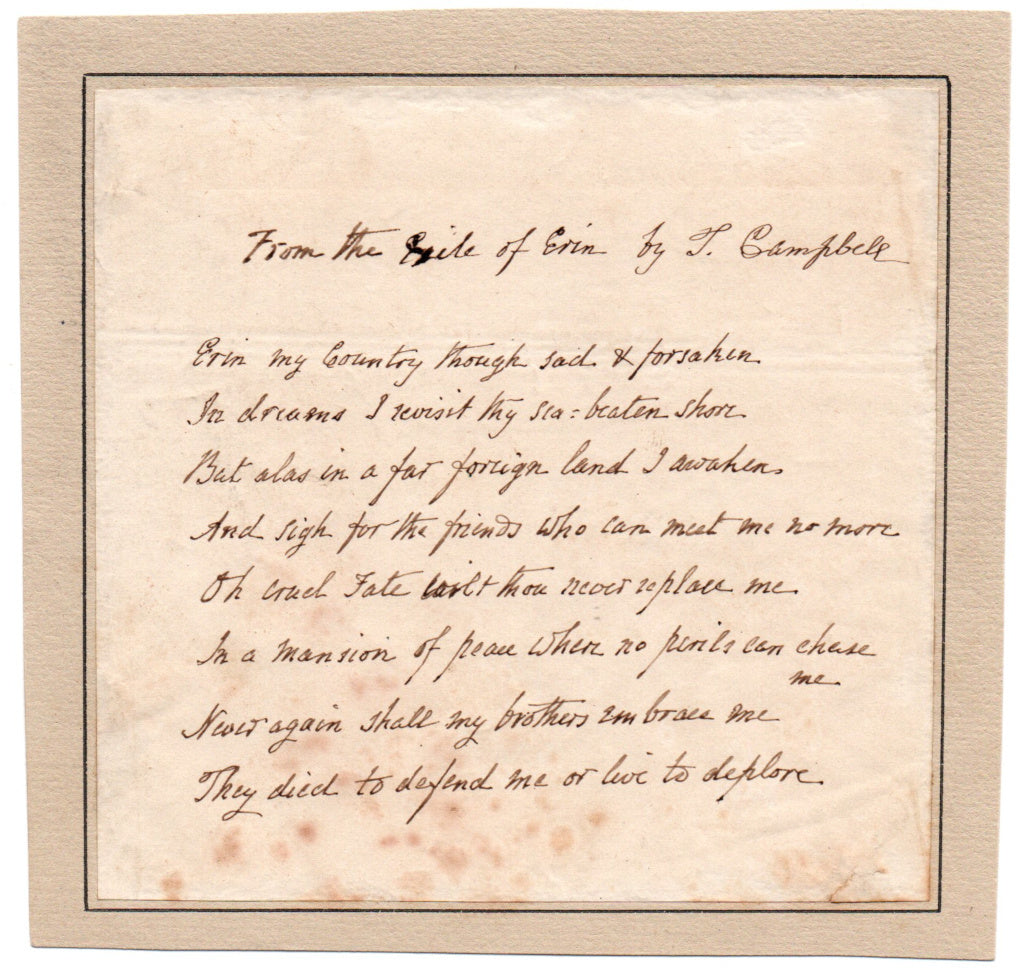 From the Exile of Erin by T. Campbell
Erin my Country though sad & forsaken
In dreams I revisit thy sea=beaten shore
But alas in a far foreign land I awaken
And sigh for the friends who can meet me no more
Oh cruel Fate wilt thou never replace me
In a mansion of peace where no perils can chase
me
Never again shall my brothers embrace me
They died to defend me or live to deplore